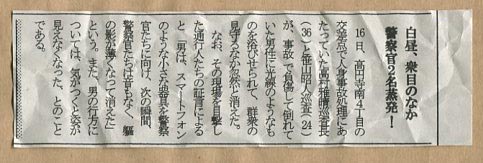 白昼、衆目のなか
警察官2名蒸発！
16日、高円寺南4丁目の
交差点で人身事故処理にあ
たっていた高村雅晴巡査長
（36）と笹山昭人巡査（24）
が、事故で負傷して倒れて
いた男性に光線のようなも
のを浴びせられて、群衆の
見守るなか忽然と消えた。
なお、その現場を目撃し
た通行人たちの証言による
と「男は、スマートフォン
のような小さな器具を警察
官たちに向け、次の瞬間、
警察官たちは音もなく、軀
の影が薄くなって消えた」
という。また、男の行方に
ついては、気がつくと姿が
見えなくなった、とのこと
である。